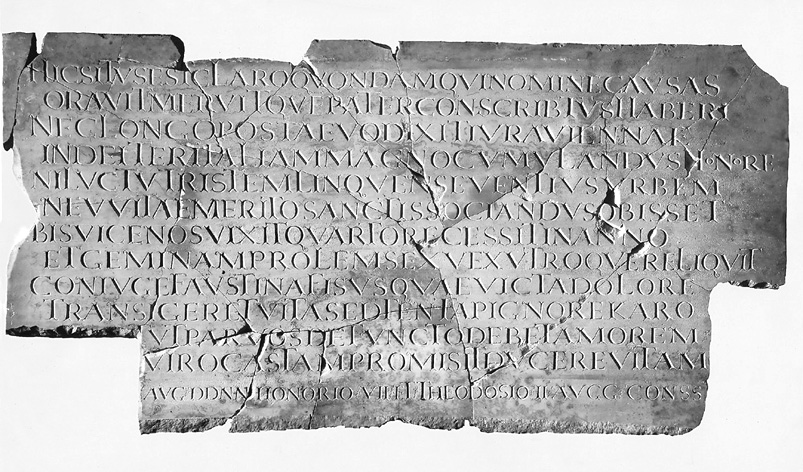 HIC SITVS EST CLARO QVONDAM QVI NOMINE CAVSAS
ORAVIT MERVITQVE PATER CONSCRIBTVS HABERI
NEC LONGO POST AEVO DIXIT IVRA VIENNAE
INDE ITER ITALIAM MAGNO CVMVLANDVS HONORE
NI LVCTV TRISTEM LINQVENS EVENTIVS VRBEM
NEV VITAE MERITO SANCTIS SOCIANDVS OBISSET
BIS VICENOS VIXIT QVARTO RECESSIT IN ANNO
ET GEMINAM PROLEM SEXV EX VTROQVE RELIQVIT
CONIVGE FAVSTINA FISVS QVAE VICTA DOLORE
TRANSIGERET VITA SED HENTA PIGNORE KARO
VT PARVOS DEFVNCTO DEBET AMOREM
VIRO CASTAM PROMISIT DVCERE VITAM
AVG DD NN HONORIO VII ET THEODOSIO II AVGG CONSS